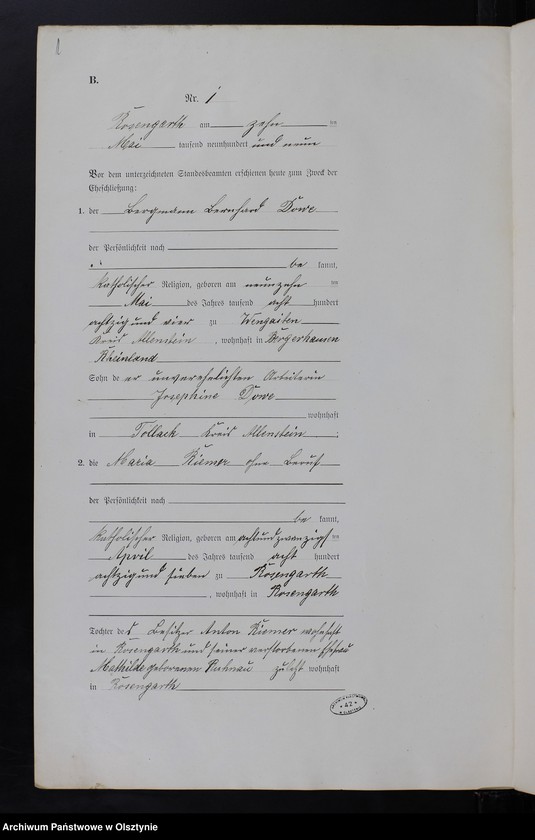 1
B.
Nr. 1
Rosengarth am zehn ten
Mai tausend neunhundert und neun
Vor dem unterzeichneten Standesbeamten erschienen heute zum Zweck der
Eheschließung:
1. der Bergmann Bernhard Dowe
der Persönlichkeit nach
be kannt,
katholischer Religion, geboren am neunzehn ten
Mai des Jahres tausend acht hundert
achtzig und vier zu Wengaiten
Kreis Allenstein, wohnhaft in
Rheinland
Sohn de er unverehelichten Arbeiterin
Josephine Dowe
wohnhaft
in Tollack Kreis Allenstein;
2. die Maria Kiemer ohne Beruf
der Persönlichkeit nach
be kannt,
katholischer Religion, geboren am achtundzwanzigs ten
April des Jahres tausend acht hundert
achtzig und sieben zu Rosengarth
, wohnhaft in Rosengarth
Tochter des Besitzer Anton Kiemer wohnhaft
in Rosengarth und seiner verstorbenen Ehefrau
Mathilde geborenen zuletzt wohnhaft
in Rosengarth
* 42 *
Archiwum Państwowe w Olsztynie